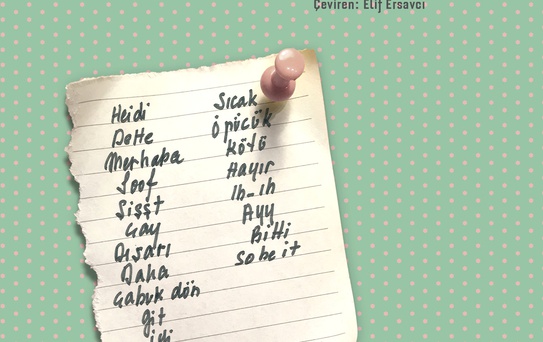 Çeviren: Elif Ersavcı
Heidi
Dette
Merhaba
Soof
Şişşt
Çay
Dışarı
Daha
Çabuk dön
Git
Sıcak
Öpücük
Kötü
Hayır
Ih-ıh
Ayy
Bitti
So be it